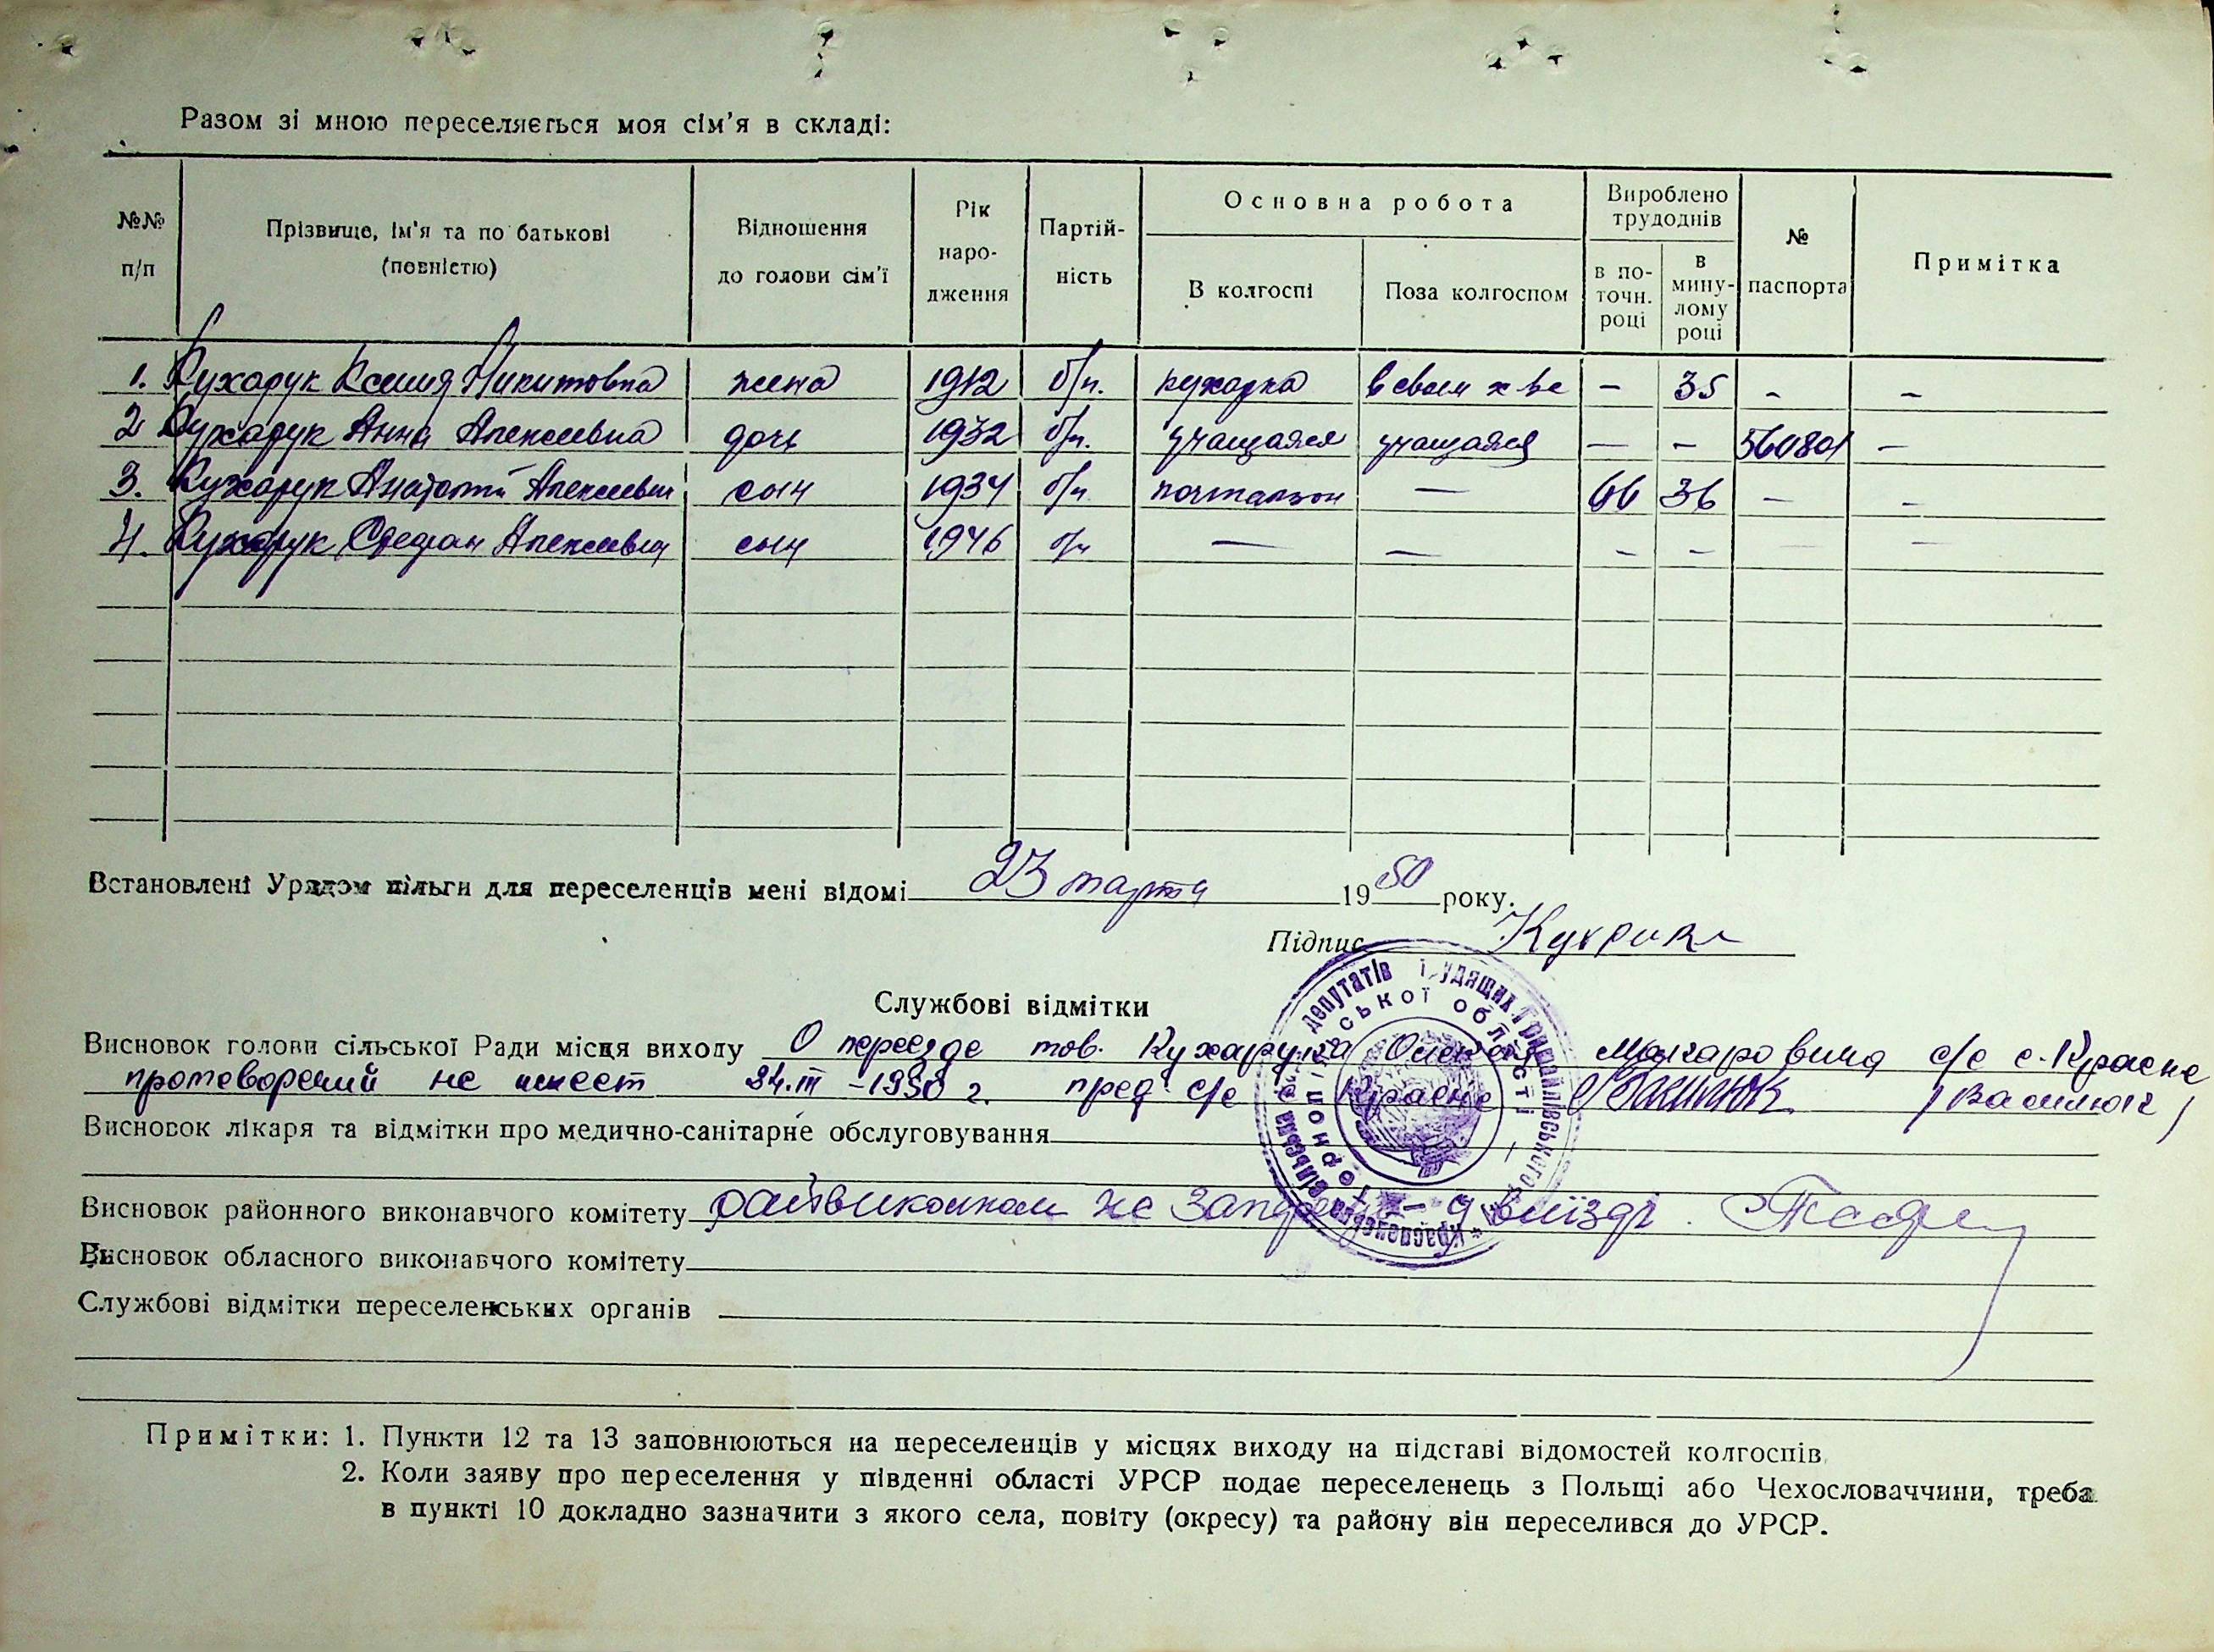 Разом зі мною переселяється моя сім'я в складі:
№№ п/п
Прізвище, ім'я та по батькові (повністю)
Відношення до голови сім'ї
Рік наро-дження
Партій-ність
Основна робота
В колгоспі
Поза колгоспом
Вироблено трудоднів
в по-точн. році
в мину-лому році
№ паспорта
Примітка
1. Кухарук Ксения Никитовна жена 1912 б/п. кухарка в своем х-ве – 35 – –
2 Кухарук Анна Алексеевна дочь 1932 б/п. учащаяся учащаяся — – 560801 –
3. Кухарук Анатолий Алексеевич сын 1934 б/п. почтальон — 66 36 – –
4. Кухарук Стефан Алексеевич сын 1946 б/п — — – – — —
Встановлені Урядом пільги для переселенців мені відомі 23 марта 1950 року.
Підпис
Службові відмітки
Висновок голови сільської Ради місця виходу О переезде тов. Кухарука Макаровича с/с с. Красне
протеворечий не имеет 24.III – 1950 г. пред. с/с Красне /Василюк/
Висновок лікаря та відмітки про медично-санітарне обслуговування
Висновок районного виконавчого комітету райвиконком не у виїзді.
Висновок обласного виконавчого комітету
Службові відмітки переселенських органів
депутатів трудящих Гримайлівського
області
Примітки: 1. Пункти 12 та 13 заповнюються на переселенців у місцях виходу на підставі відомостей колгоспів.
2. Коли заяву про переселення у південні області УРСР подає переселенець з Польщі або Чехословаччини, треба
в пункті 10 докладно зазначити з якого села, повіту (окресу) та району він переселився до УРСР.